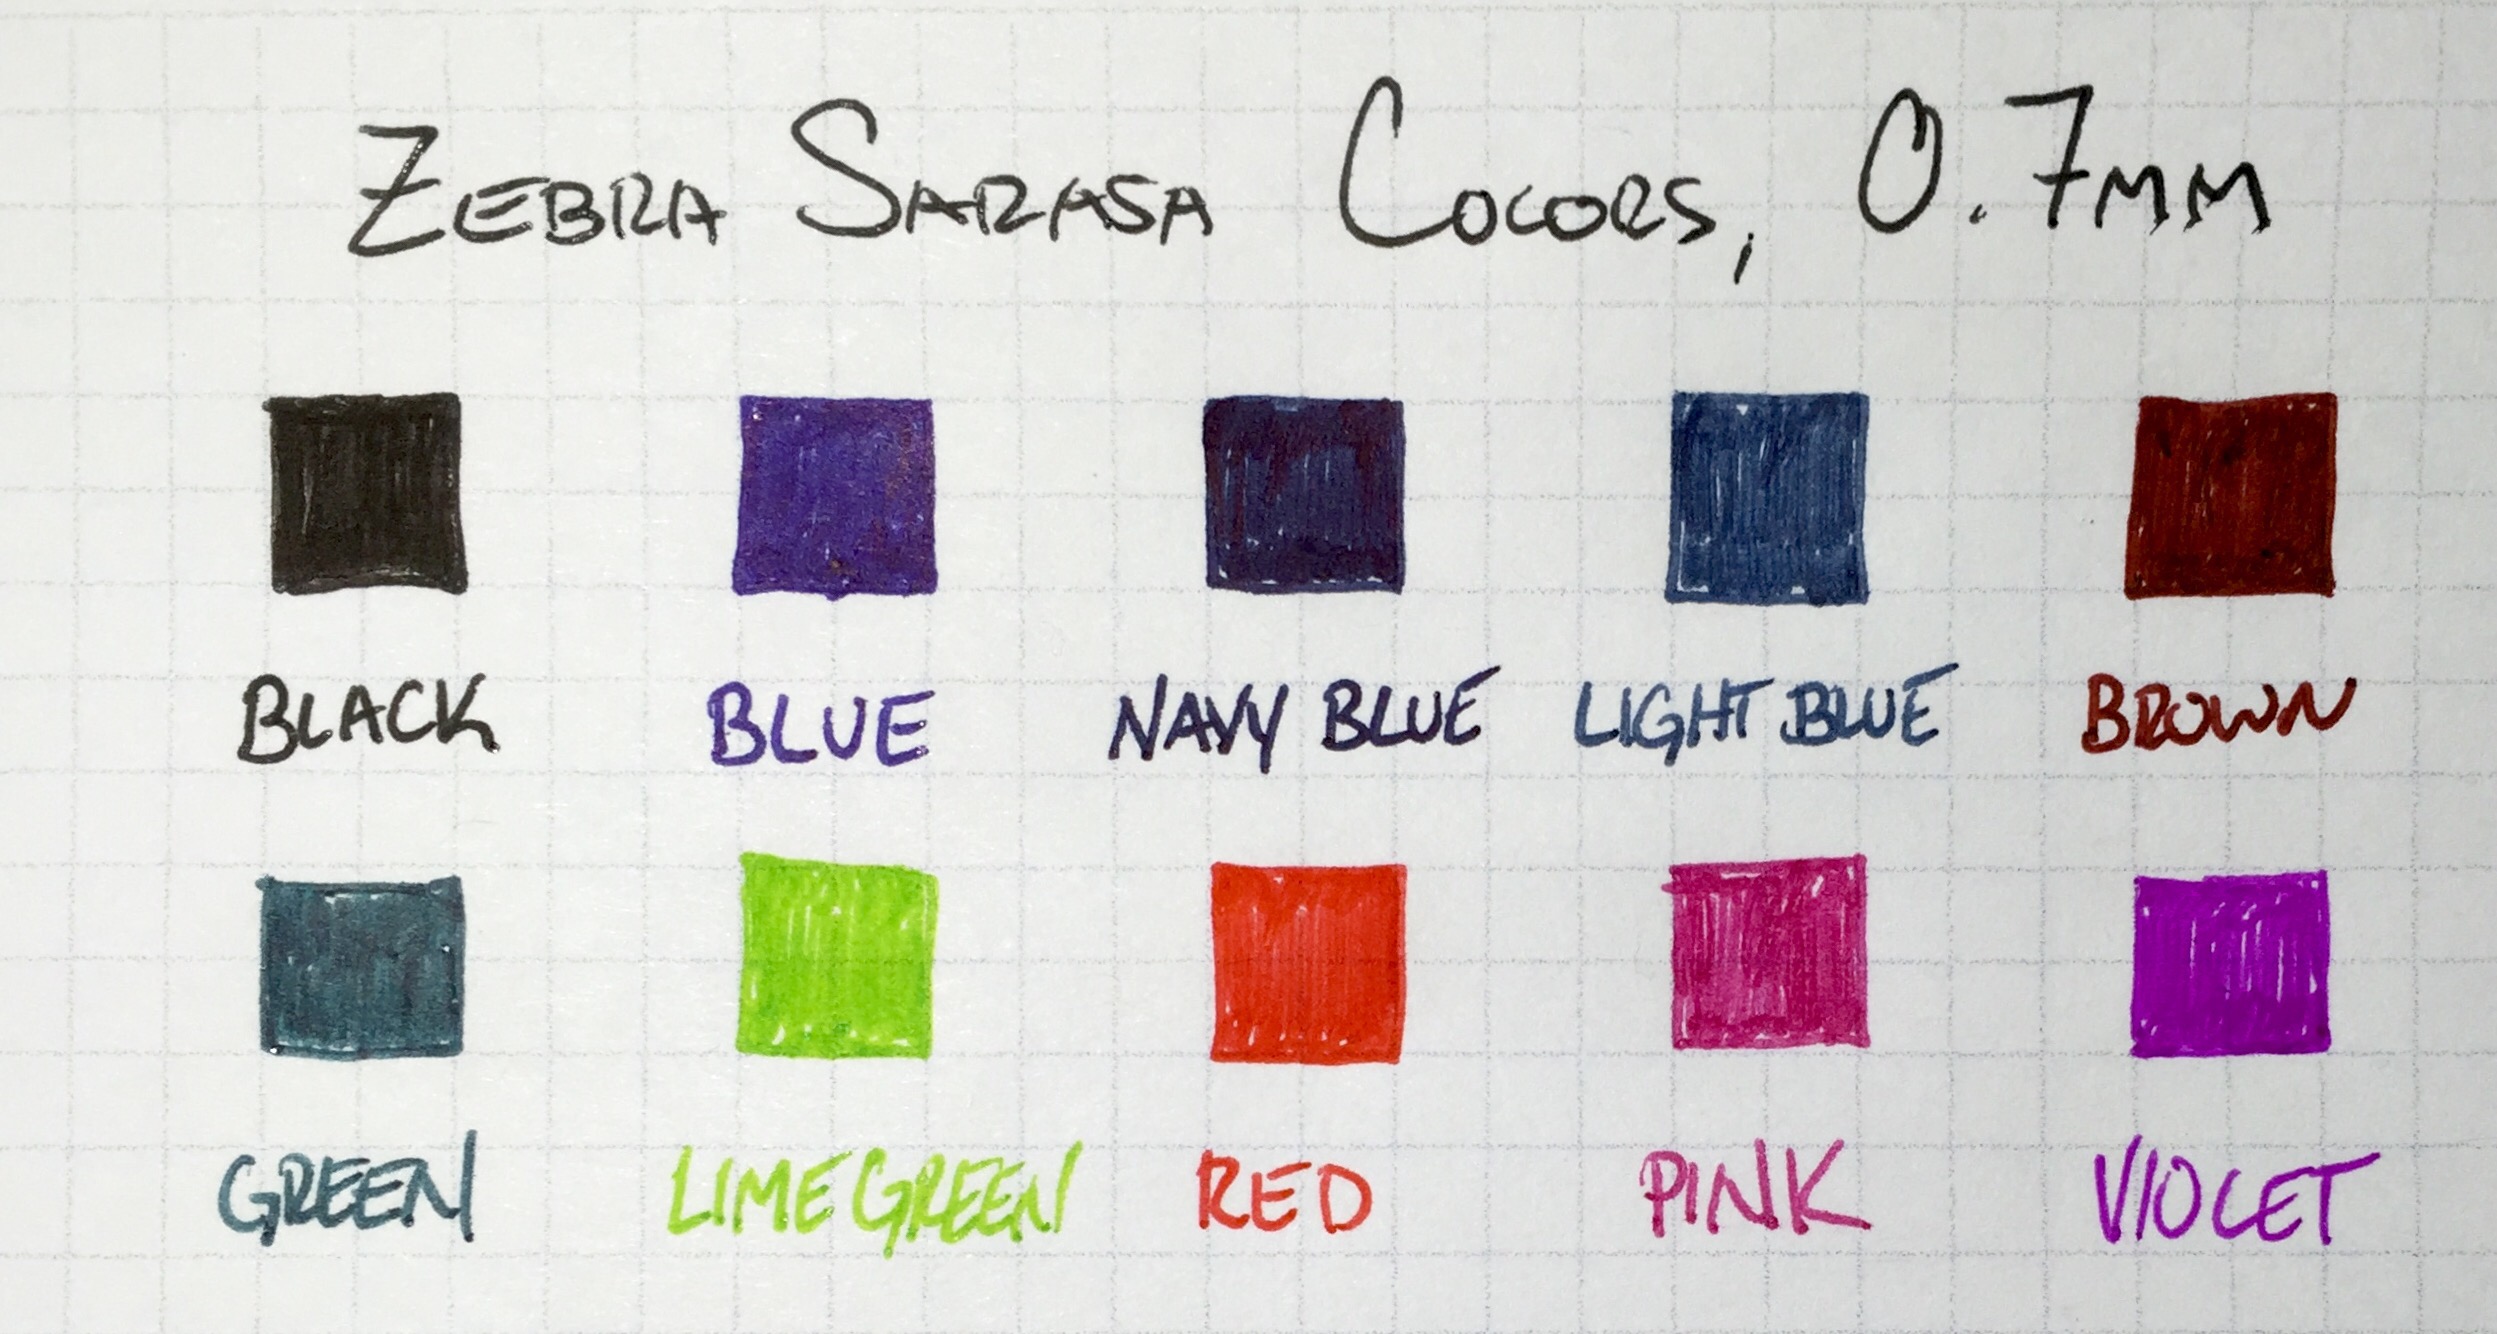 ZEBRA SARASA COLORS, 0.7MM
BLACK BLUE NAVY BLUE LIGHT BLUE BROWN
GREEN LIME GREEN RED PINK VIOLET